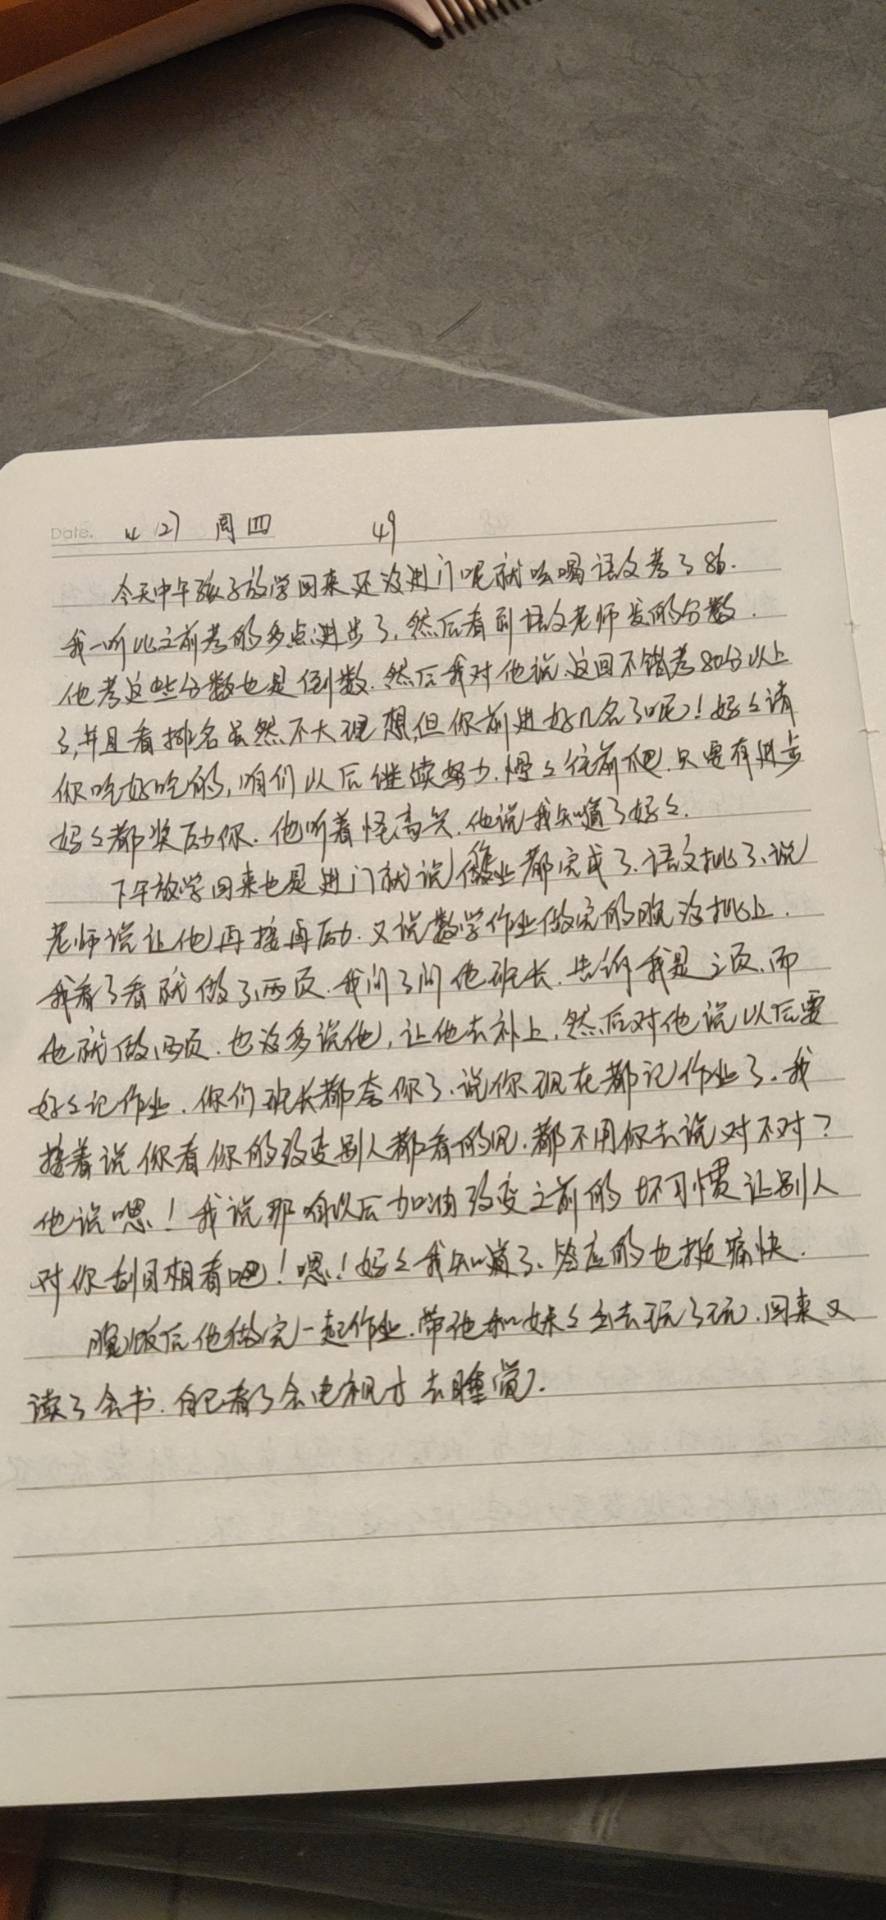 Date. 4 (2) 周四 49
今天中午孩子放学回来还没进门呢就吆喝语文考了86.
我一听比之前考的多点进步了,然后看到语文老师发的分数.
他考这些分数也是倒数.然后我对他说.这回不错考80分以上
了,并且看排名虽然不大理想,但你前进好几名了呢!妈々请
你吃好吃的,咱们以后继续努力.慢々往前爬.只要有进步
妈々都奖励你.他听着怪高兴.他说我知道了妈々.
下午放学回来也是进门就说作业都完成了.语文批了、说
老师说让他再接再励.又说数学作业做完的晚没批上.
我看了看就做了两页.我问了问他班长.告诉我是三页.而
他就做两页.也没多说他,让他去补上,然后对他说以后要
好々记作业.你们班长都夸你了.说你现在都记作业了.我
接着说你看你的改变别人都看的见.都不用你去说对不对?
他说嗯!我说那咱以后加油改变之前的坏习惯让别人
对你刮目相看吧!嗯!妈々我知道了、答应的也挺痛快.
晚饭后他做完一起作业.带他和妹々出去玩了玩.回来又
读了会书.自己看了会电视才去睡觉.